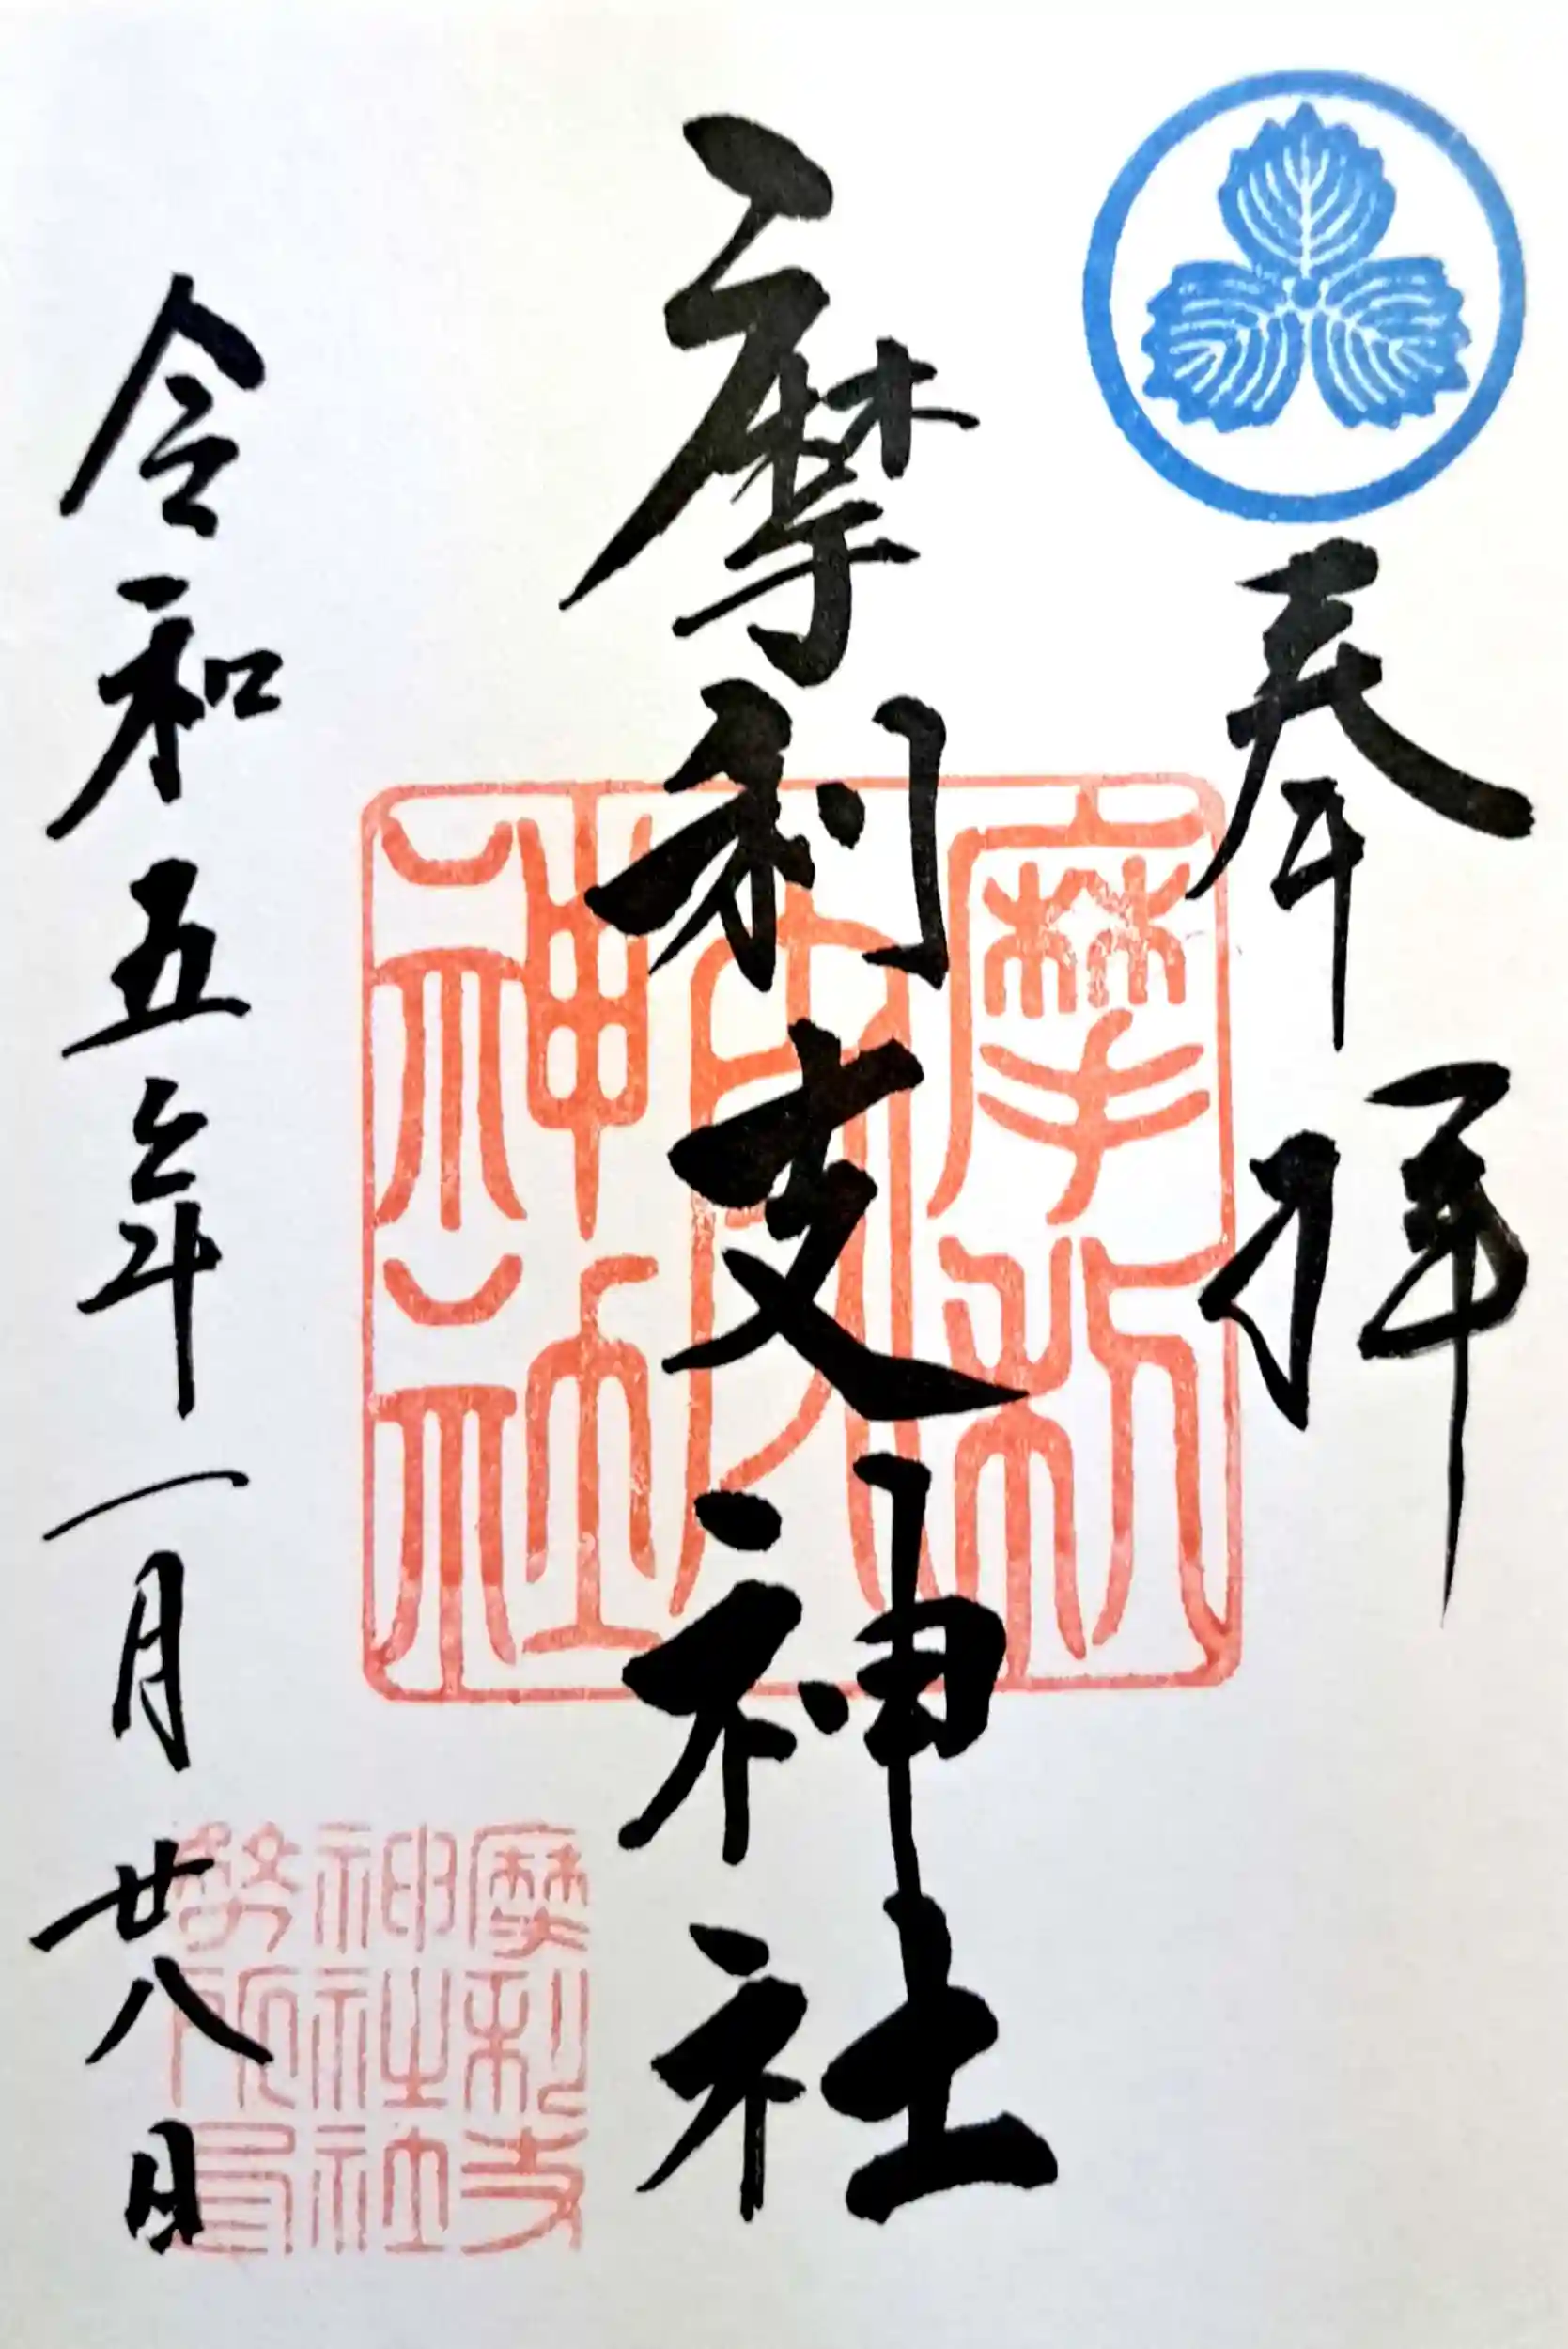 奉拝
摩利支神社
令和五年一月廿八日
摩利
支天
神社
摩利支
神社社
務所印